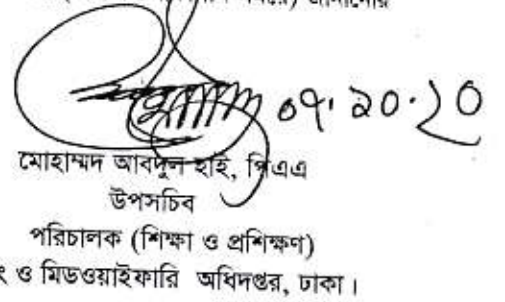 জানানোর
০৭.১০.২০
মোহাম্মদ আবদুল হাই, পিএএ
উপসচিব
পরিচালক (শিক্ষা ও প্রশিক্ষণ)
ও মিডওয়াইফারি অধিদপ্তর, ঢাকা।